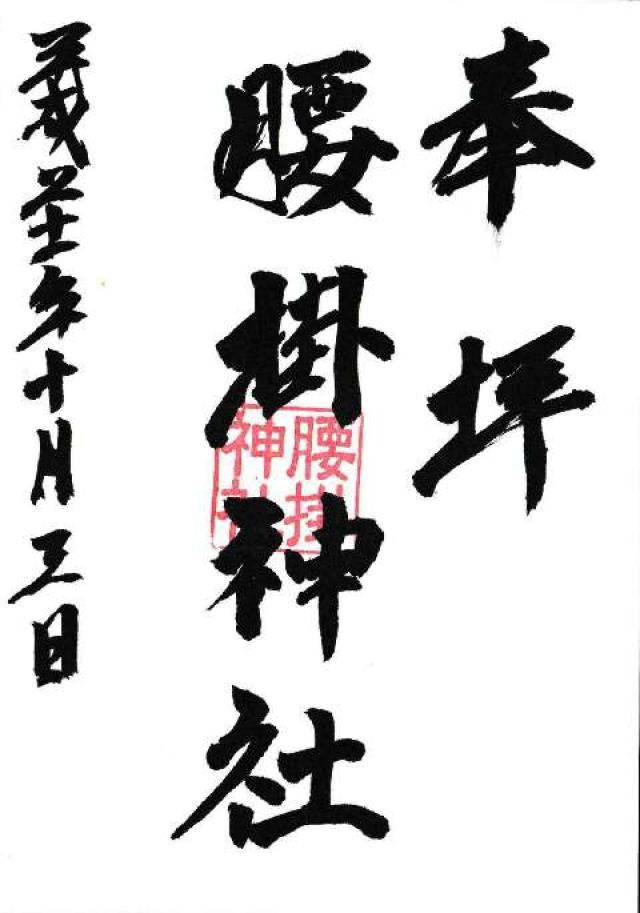 奉拝
腰掛神社
平成年十月三日
腰掛
神社